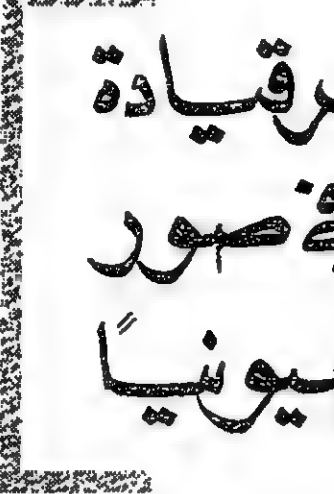 قيادة
في صور
يونياً